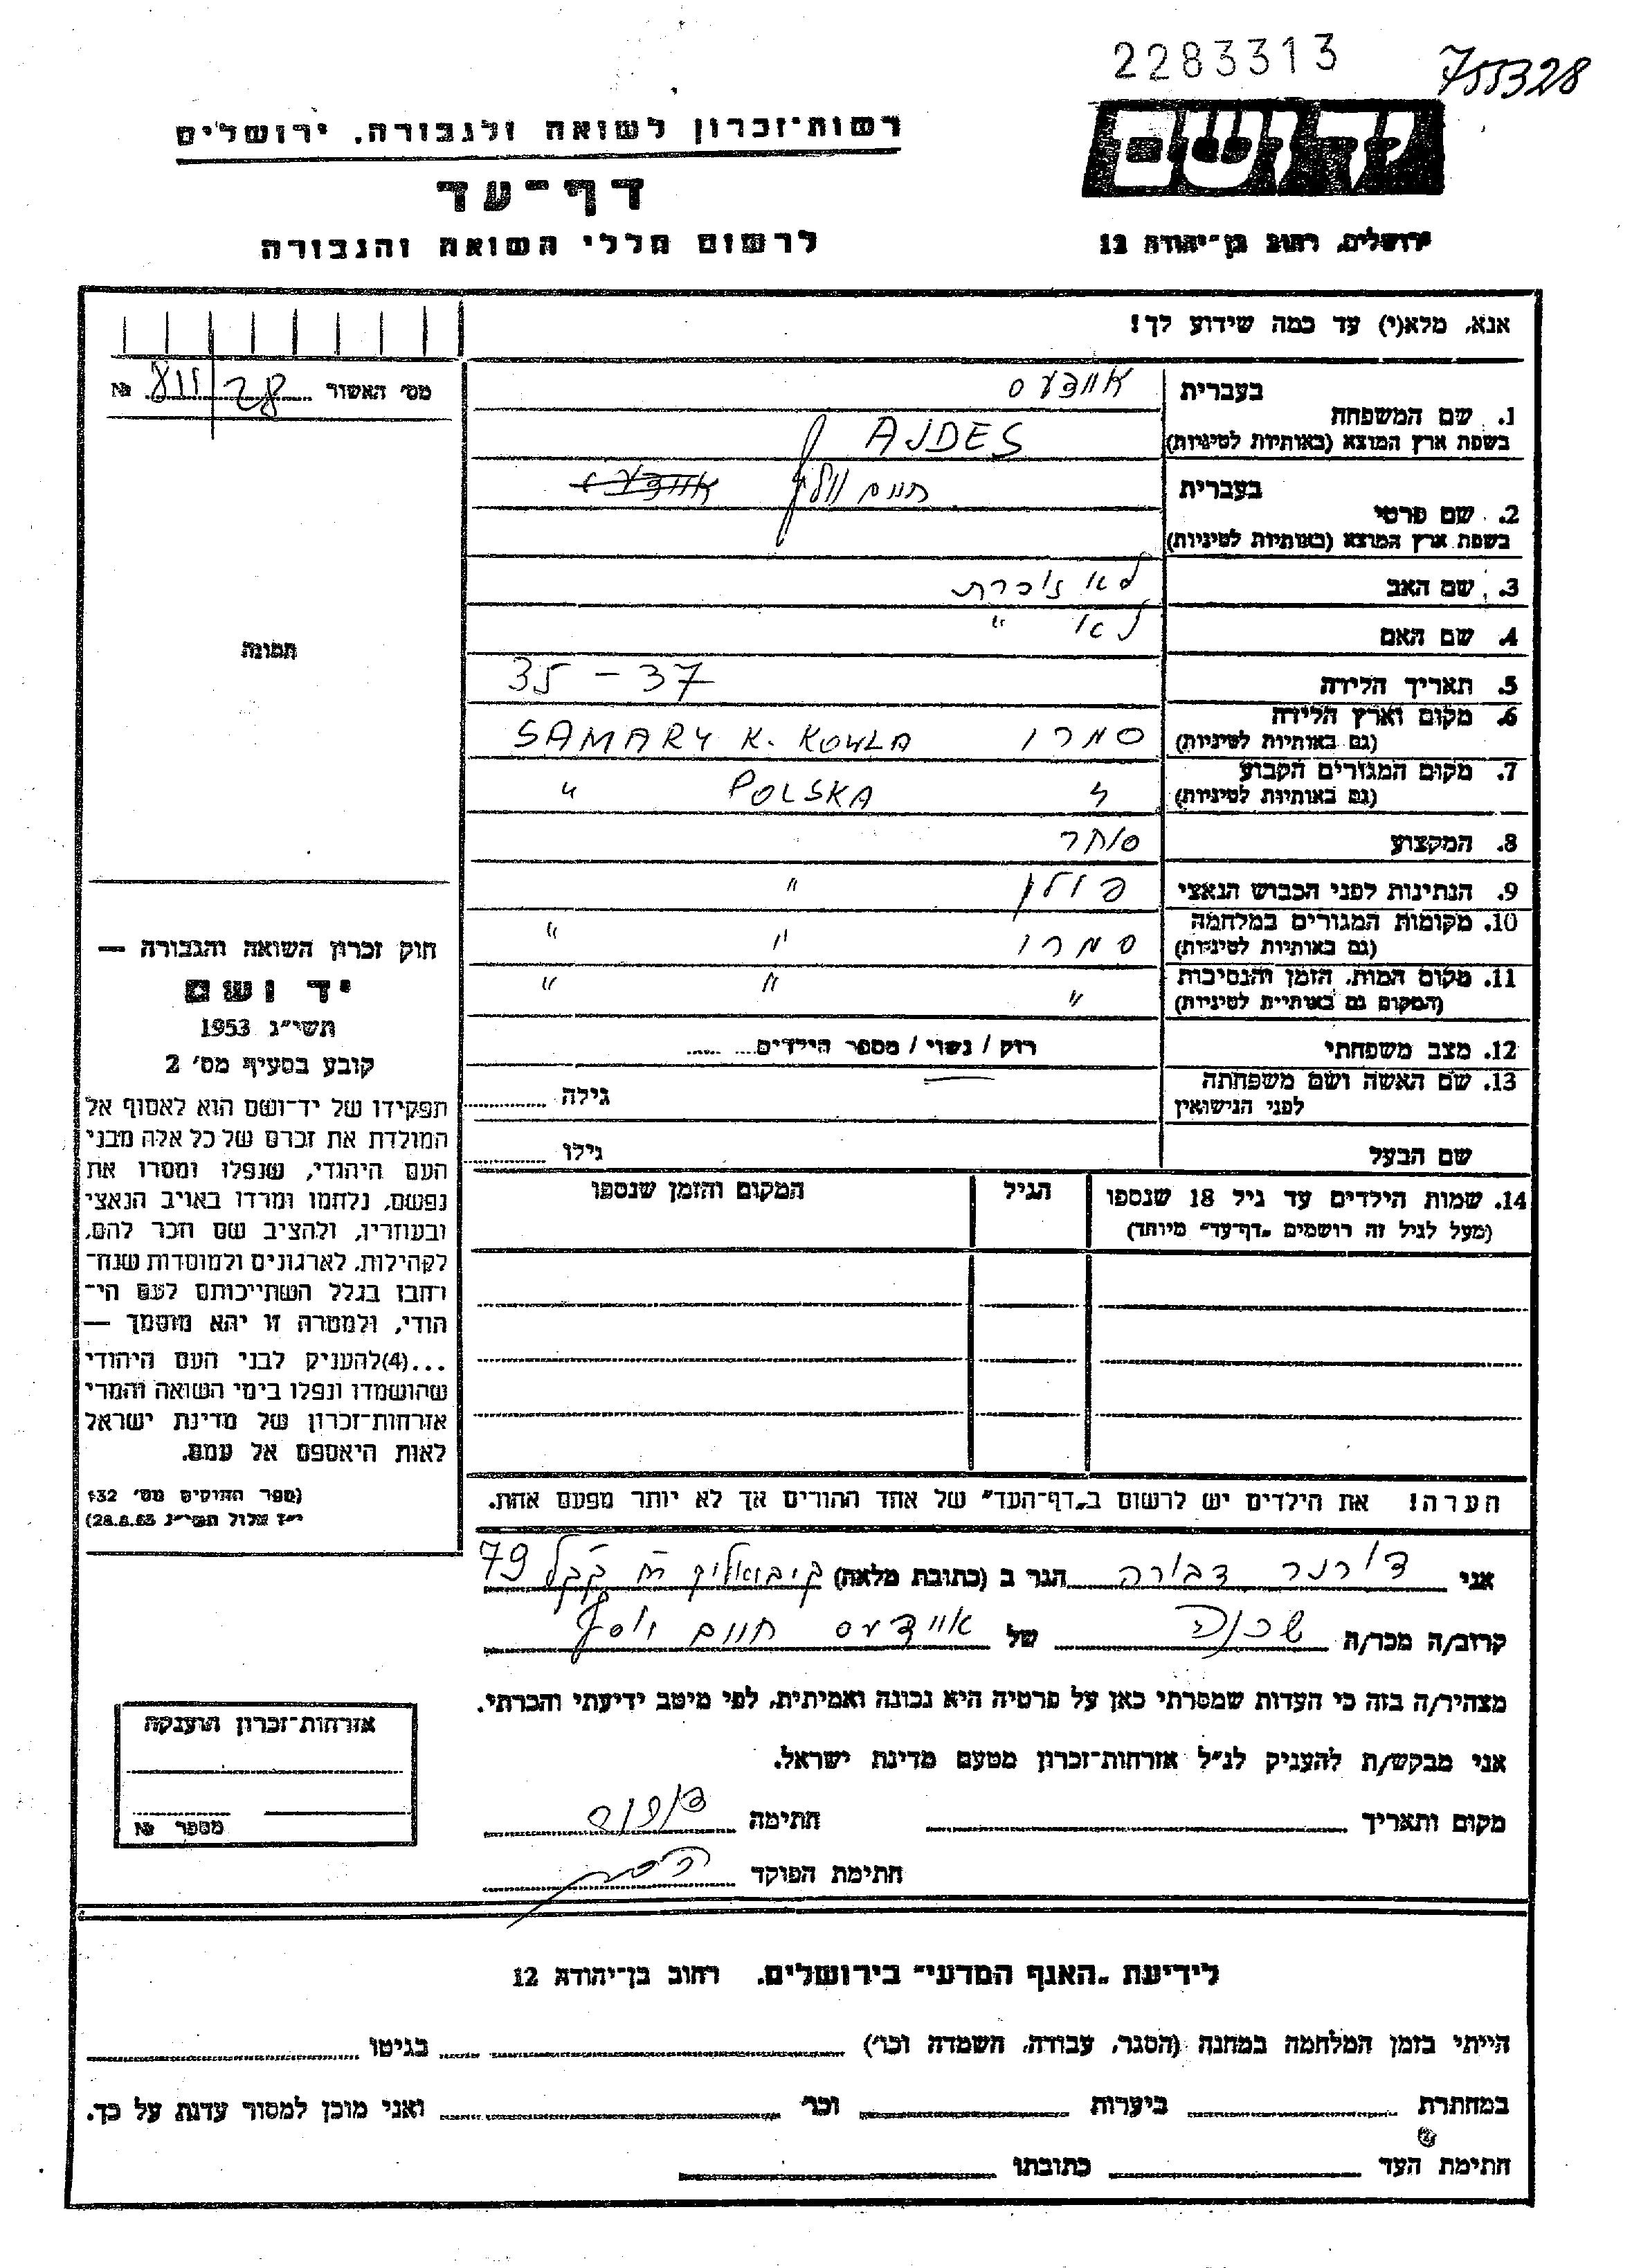 2283313
755328
יד ושם
רשות־זכרון לשואה ולגבורה, ירושלים
דף־עד
לרשום חללי השואה והגבורה
ירושלים, רחוב בן־יהודה 12
אנא, מלא(י) עד כמה שידוע לך!
מס' האשור 28 № VIII
1. שם המשפחה
בעברית איידעס
בשפת ארץ המוצא (באותיות לטיניות) AJDES
2. שם פרטי
בעברית חיים
בשפת ארץ המוצא (באותיות לטיניות)
3. שם האב לא זוכרת
4. שם האם לא "
5. תאריך הלידה 35 – 37
6. מקום וארץ הלידה
(גם באותיות לטיניות) סמרי SAMARY K. KOWLA
7. מקום המגורים הקבוע
(גם באותיות לטיניות) " POLSKA "
8. המקצוע סוחר
9. הנתינות לפני הכבוש הנאצי פולין "
10. מקומות המגורים במלחמה
(גם באותיות לטיניות) סמרי " "
11. מקום המות, הזמן והנסיבות
(המקום גם באותיות לטיניות) " " "
12. מצב משפחתי רוק / נשוי / מספר הילדים
13. שם האשה ושם משפחתה
לפני הנישואין גילה
שם הבעל גילו
14. שמות הילדים עד גיל 18 שנספו הגיל המקום והזמן שנספו
(מעל לגיל זה רושמים „דף־עד" מיוחד)
תמונה
חוק זכרון השואה והגבורה —
יד ושם
תשי"ג 1953
קובע בסעיף מס' 2
תפקידו של יד־ושם הוא לאסוף אל
המולדת את זכרם של כל אלה מבני
העם היהודי, שנפלו ומסרו את
נפשם, נלחמו ומרדו באויב הנאצי
ובעוזריו, ולהציב שם וזכר להם,
לקהילות, לארגונים ולמוסדות שנח־
רחבו בגלל השתייכותם לעם הי־
הודי, ולמטרה זו יהא מוסמך —
...(4)להעניק לבני העם היהודי
שהושמדו ונפלו בימי השואה והמרי
אזרחות־זכרון של מדינת ישראל
לאות היאספם אל עמם.
(ספר החוקים מס' 132
י"ז אלול תשי"ג 28.8.53)
הערה! את הילדים יש לרשום ב„דף־העד" של אחד ההורים אך לא יותר מפעם אחת.
אני דורנר דבורה הגר ב (כתובת מלאה) 79
קרוב/ה מכר/ה שכנה של איידעס חיים יוסף
מצהיר/ה בזה כי העדות שמסרתי כאן על פרטיה היא נכונה ואמיתית, לפי מיטב ידיעתי והכרתי.
אני מבקש/ת להעניק לנ"ל אזרחות־זכרון מטעם מדינת ישראל.
מקום ותאריך חתימה
חתימת הפוקד
אזרחות־זכרון הוענקה
מספר №
לידיעת „האגף המדעי" בירושלים, רחוב בן־יהודה 12
הייתי בזמן המלחמה במחנה (הסגר, עבודה, השמדה וכו') בגיטו
במחתרת ביערות וכו' ואני מוכן למסור עדות על כך.
חתימת העד כתובתו